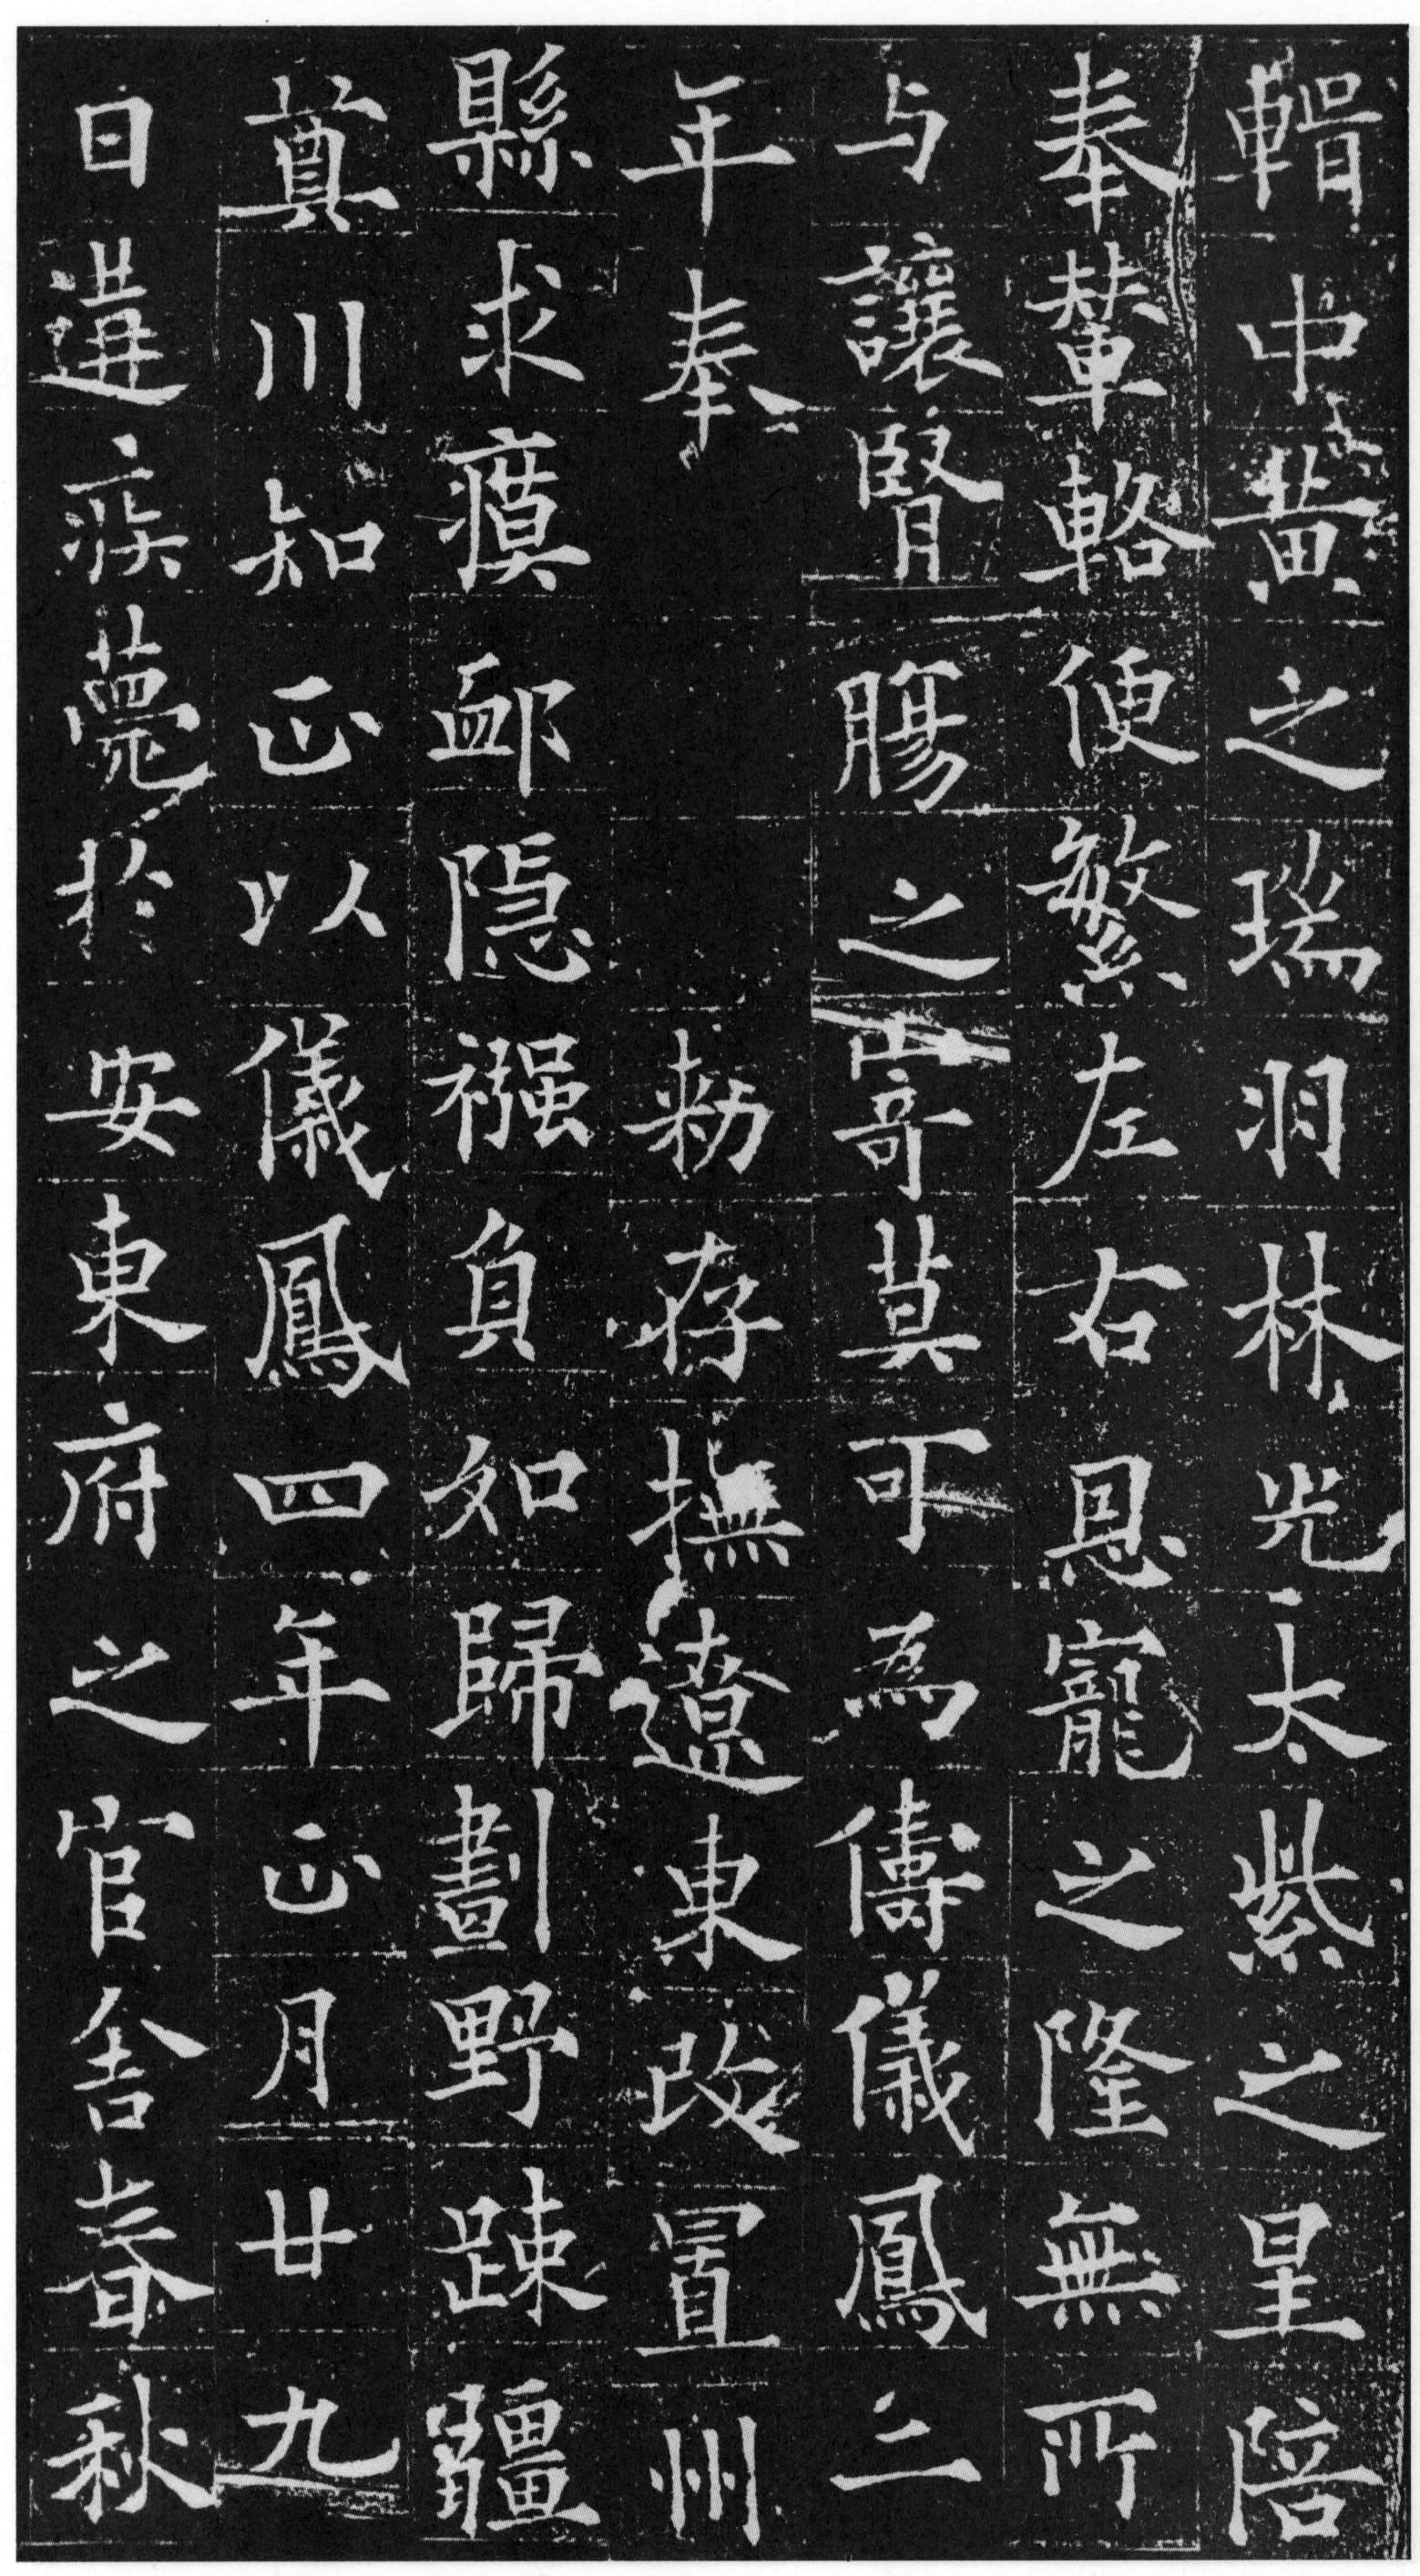 輯中黃之瑞羽林光太紫之星陪
奉輦輅便繁左右恩寵之隆無所
与讓賢膓之寄莫可為儔儀鳳二
年奉 敕存撫遼東改置州
縣求瘼卹隱襁負如歸劃野踈疆
奠川知正以儀鳳四年正月廿九
日遘疾薨於安東府之官舍春秋